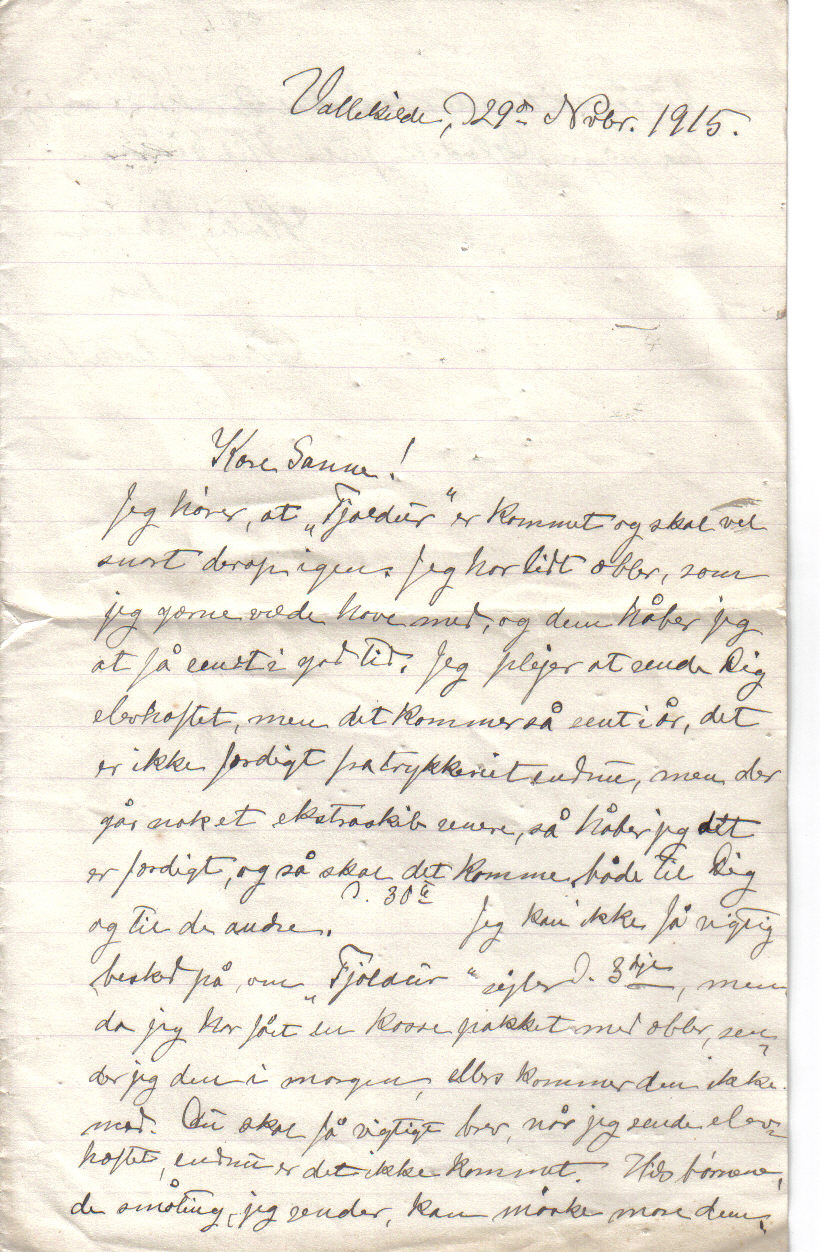 Vallekilde, d 29de Novbr. 1915.
Kære Sanne!
Jeg hører, at „Fjaldur" er kommet og skal vel
snart derop igen. Jeg har lidt æbler, som
jeg gærne vilde have med, og dem håber jeg
at få sendt i god tid. Jeg plejer at sende Dig
elevhæftet, men det kommer så sent i år, det
er ikke færdigt fra trykkeriet endnu, men der
går nok et ekstraskib senere, så håber jeg det
er færdigt, og så skal det komme både til Dig
og til de andre. d. 30te Jeg kan ikke få rigtig
besked på, om „Fjaldur" sejler d. 3dje, men
da jeg har fået en kasse pakket med æbler, sen
der jeg den i morgen, ellers kommer den ikke
med. Du skal få rigtigt brev, når jeg sende elev-
hæftet, endnu er det ikke kommet. Hils børnene,
de småting, jeg sender, kan måske more dem,